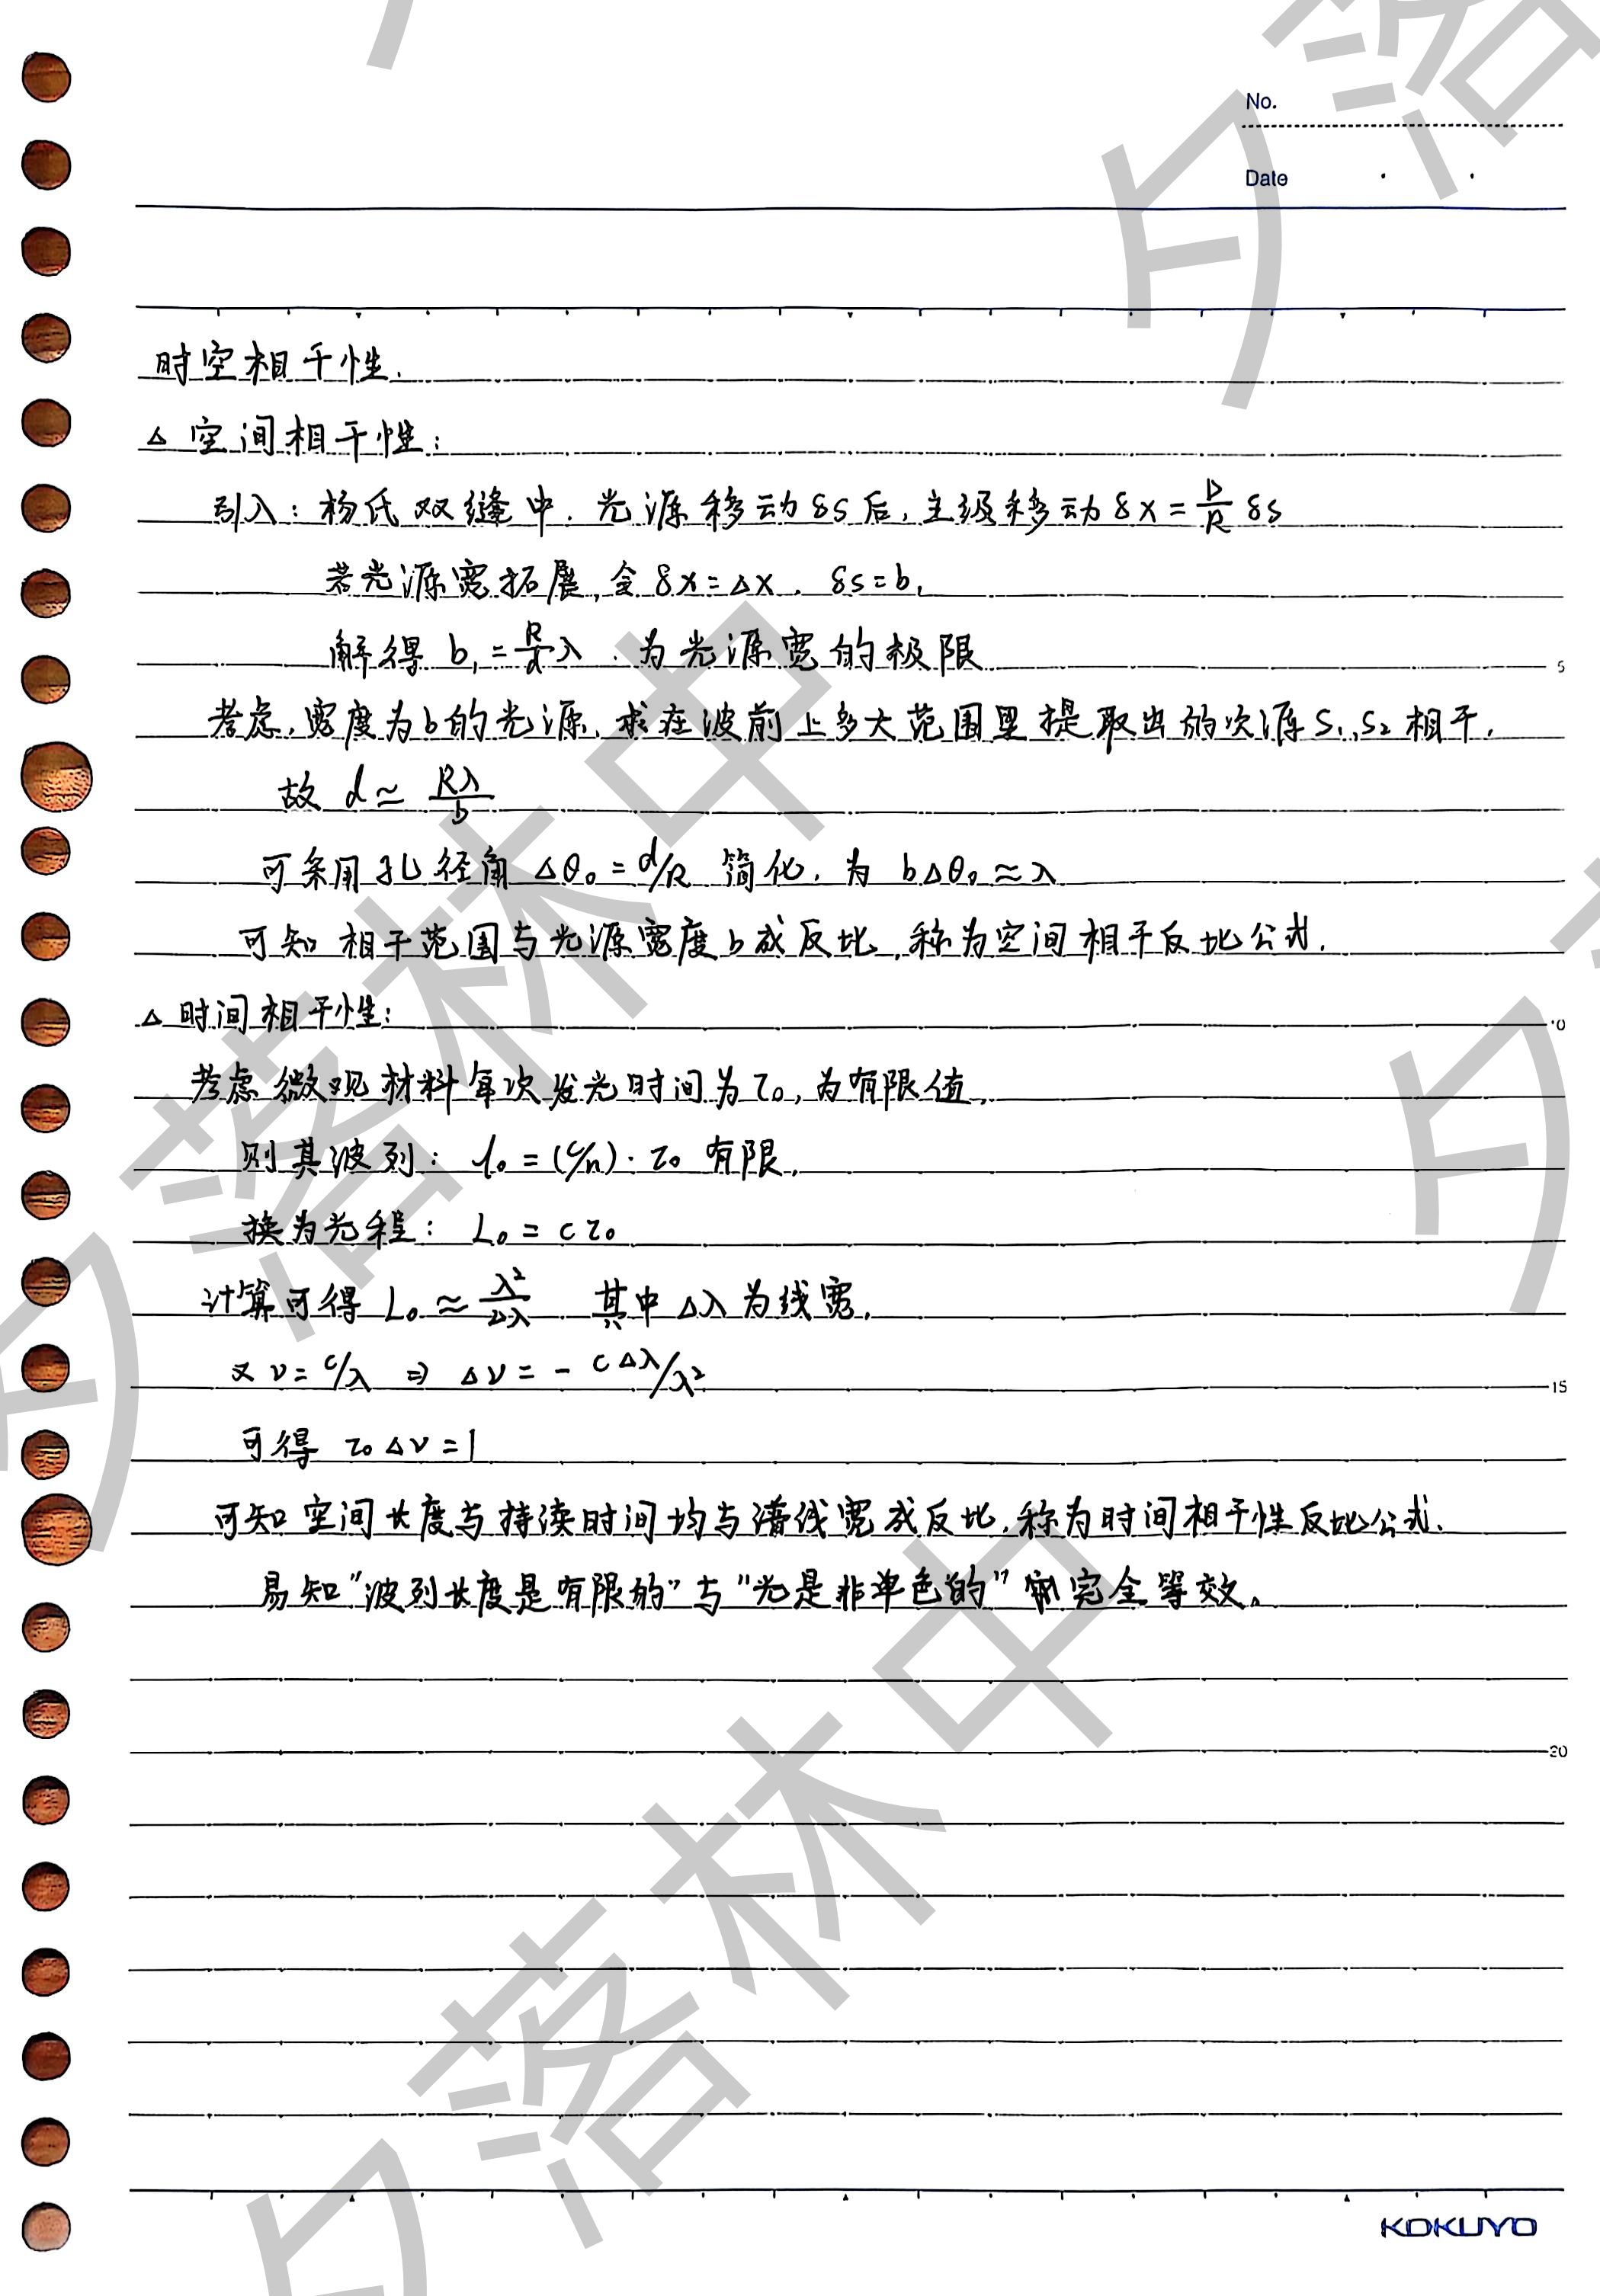 No.
Date
时空相干性.
△ 空间相干性:
引入: 杨氏双缝中. 光源移动δs后, 主级移动δx = D/R δs
若光源宽拓展, 令δx=Δx. δs=b₁
解得 b₁ = R/d λ. 为光源宽的极限
考虑, 宽度为b的光源, 求在波前上多大范围里提取出的次源S₁,S₂相干.
故 d ≈ Rλ/b
可采用孔径角 Δθ₀ = d/R 简化. 为 bΔθ₀ ≈ λ
可知相干范围与光源宽度b成反比, 称为空间相干反比公式.
△ 时间相干性:
考虑微观材料每次发光时间为τ₀, 为有限值.
则其波列: l₀ = (c/n)·τ₀ 有限.
换为光程: L₀ = cτ₀
计算可得 L₀ ≈ λ²/Δλ 其中Δλ为线宽.
又 ν = c/λ ⇒ Δν = - cΔλ/λ²
可得 τ₀Δν = 1
可知空间长度与持续时间均与谱线宽成反比, 称为时间相干性反比公式.
易知"波列长度是有限的"与"光是非单色的"完全等效.
5
10
15
20
KOKUYO
夕落林中
夕落林中
夕落
夕落